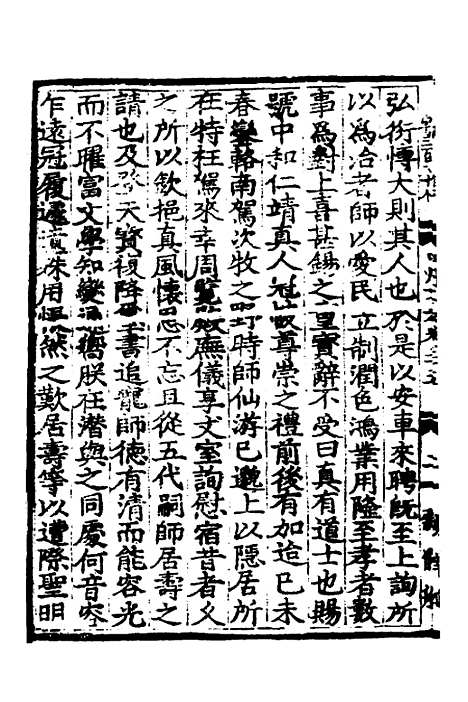 弘衍博大則其人也於是以安車來聘既至上詢所
以為治者師以愛民立制潤色鴻業用隆至孝者數
事為對上喜甚錫之重寶辭不受曰真有道士也賜
號中和仁靖真人冠服尊崇之禮前後有加迨己未
春鑾輅南駕次牧之時師仙游已邈上以隱居所
在特枉駕來幸周覽殿廡儀享文室詢慰宿昔者久
之所以欽挹真風懷思不忘且從五代嗣師居壽之
請也及登天寶復降璽書追寵師德有清而能容光
而不曜富文學知變朕在潛與之同慶何音容
乍遠冠履遽遺珠用悵然之歎居壽等以遭際聖明